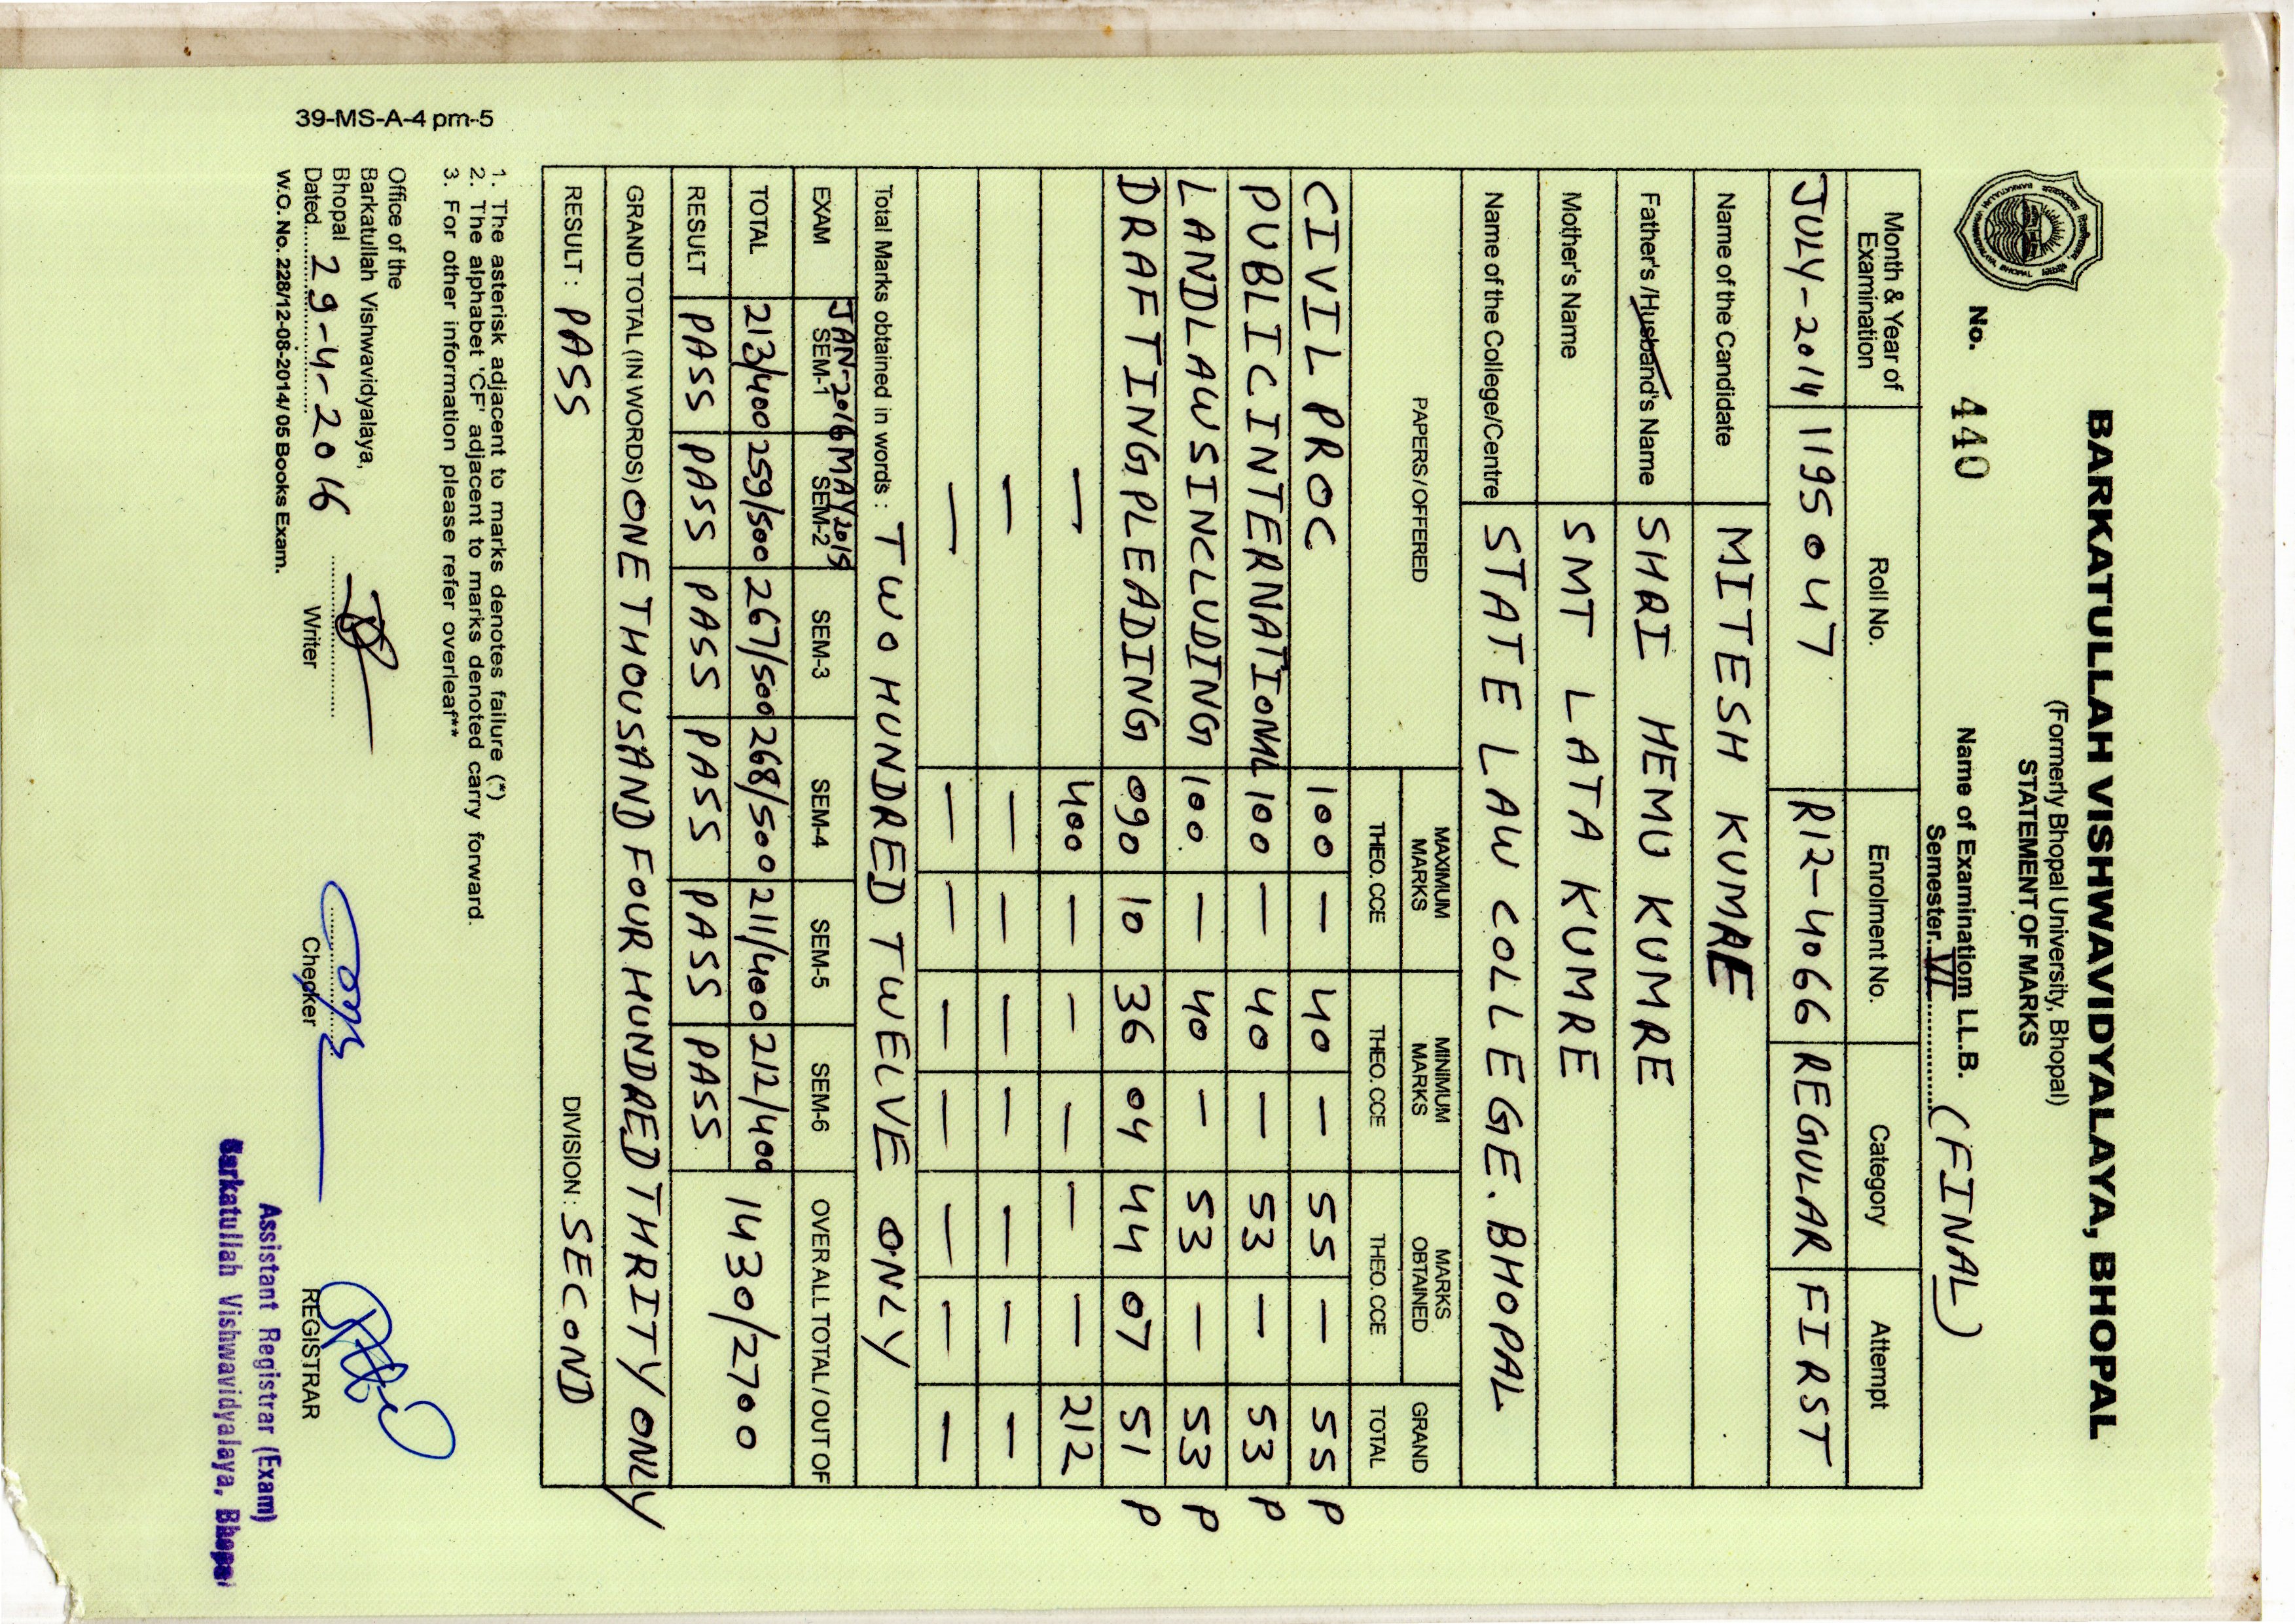 BARKATULLAH VISHWAVIDYALAYA, BHOPAL
(Formerly Bhopal University, Bhopal)
STATEMENT OF MARKS
No. 440 Name of Examination LL.B. (FINAL)
Semester. VI
Month & Year of Examination Roll No. Enrolment No. Category Attempt
JULY-2014 1195047 R12-4066 REGULAR FIRST
Name of the Candidate MITESH KUMRE
Father's /Husband's Name SHRI HEMU KUMRE
Mother's Name SMT LATA KUMRE
Name of the College/Centre STATE LAW COLLEGE. BHOPAL
PAPERS / OFFERED MAXIMUM MARKS MINIMUM MARKS MARKS OBTAINED GRAND TOTAL
THEO. CCE THEO. CCE THEO. CCE
CIVIL PROC 100 — 40 — 55 — 55 P
PUBLIC INTERNATIONAL 100 — 40 — 53 — 53 P
LAND LAWS INCLUDING 100 — 40 — 53 — 53 P
DRAFTING PLEADING 090 10 36 04 44 07 51 P
— 400 — — — — — 212
— — — — — — — —
— — — — — — — —
Total Marks obtained in words : TWO HUNDRED TWELVE ONLY
EXAM JAN-2016 SEM-1 MAY 2015 SEM-2 SEM-3 SEM-4 SEM-5 SEM-6 OVER ALL TOTAL / OUT OF
TOTAL 213/400 259/500 267/500 268/500 211/400 212/400 1430/2700
RESULT PASS PASS PASS PASS PASS PASS
GRAND TOTAL (IN WORDS) ONE THOUSAND FOUR HUNDRED THRITY ONLY
RESULT : PASS DIVISION : SECOND
1. The asterisk adjacent to marks denotes failure (*)
2. The alphabet 'CF' adjacent to marks denoted carry forward.
3. For other information please refer overleaf**
39-MS-A-4 pm-5
Office of the
Barkatullah Vishwavidyalaya,
Bhopal
Dated 29-4-2016
Writer Checker REGISTRAR
W.O. No. 228/12-08-2014/ 05 Books Exam.
Assistant Registrar (Exam)
Barkatullah Vishwavidyalaya, Bhopal